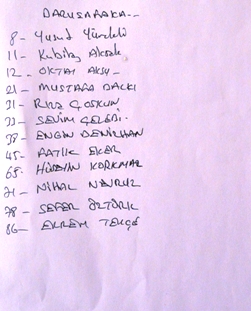 DARUŞŞAFAKA--
8- Yusuf Yürekli
11- Kubilay Aksak
12- OKTAY AKSU-
21- MUSTAFA
31- RIZA ÇOŞKUN
33- SEVİM ÇELEBİ.
38- ENGİN DENİZHAN
45- EKER
68- HÜSEYİN KORKMAZ
71- NİHAL NEVRUZ
78- SEFER ÖZTÜRK
86- EKREM